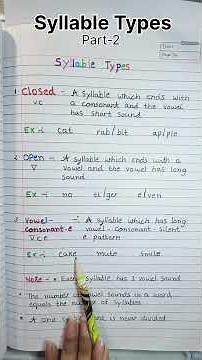 Syllable Types
Part-2
Syllable Types
1 Closed - A syllable which ends with
vc a consonant and the vowel
has short sound
Ex -: cat rab/bit ap/ple
2 Open - A syllable which ends with a
v vowel and the vowel has long
sound
Ex -: no ti/ger e/ven
3 Vowel- -: A syllable which has long
Consonant-e vowel - consonant - silent
vce e pattern
Ex -: cake mute smile
Note - • Each syllable has 1 vowel sound
• The number of vowel sounds in a word
equals the number of syllables
• A one is never divided